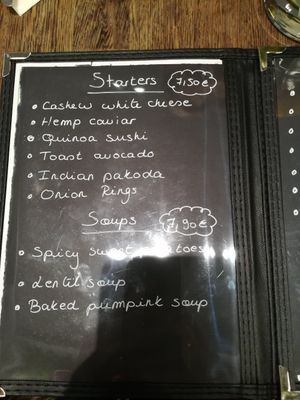 Starters 7,50€
• Cashew white cheese
• Hemp caviar
• Quinoa sushi
• Toast avocado
• Indian pakoda
• Onion Rings
Soups 7,90€
• Spicy sweet potatoes
• Lentil soup
• Baked pumpink soup